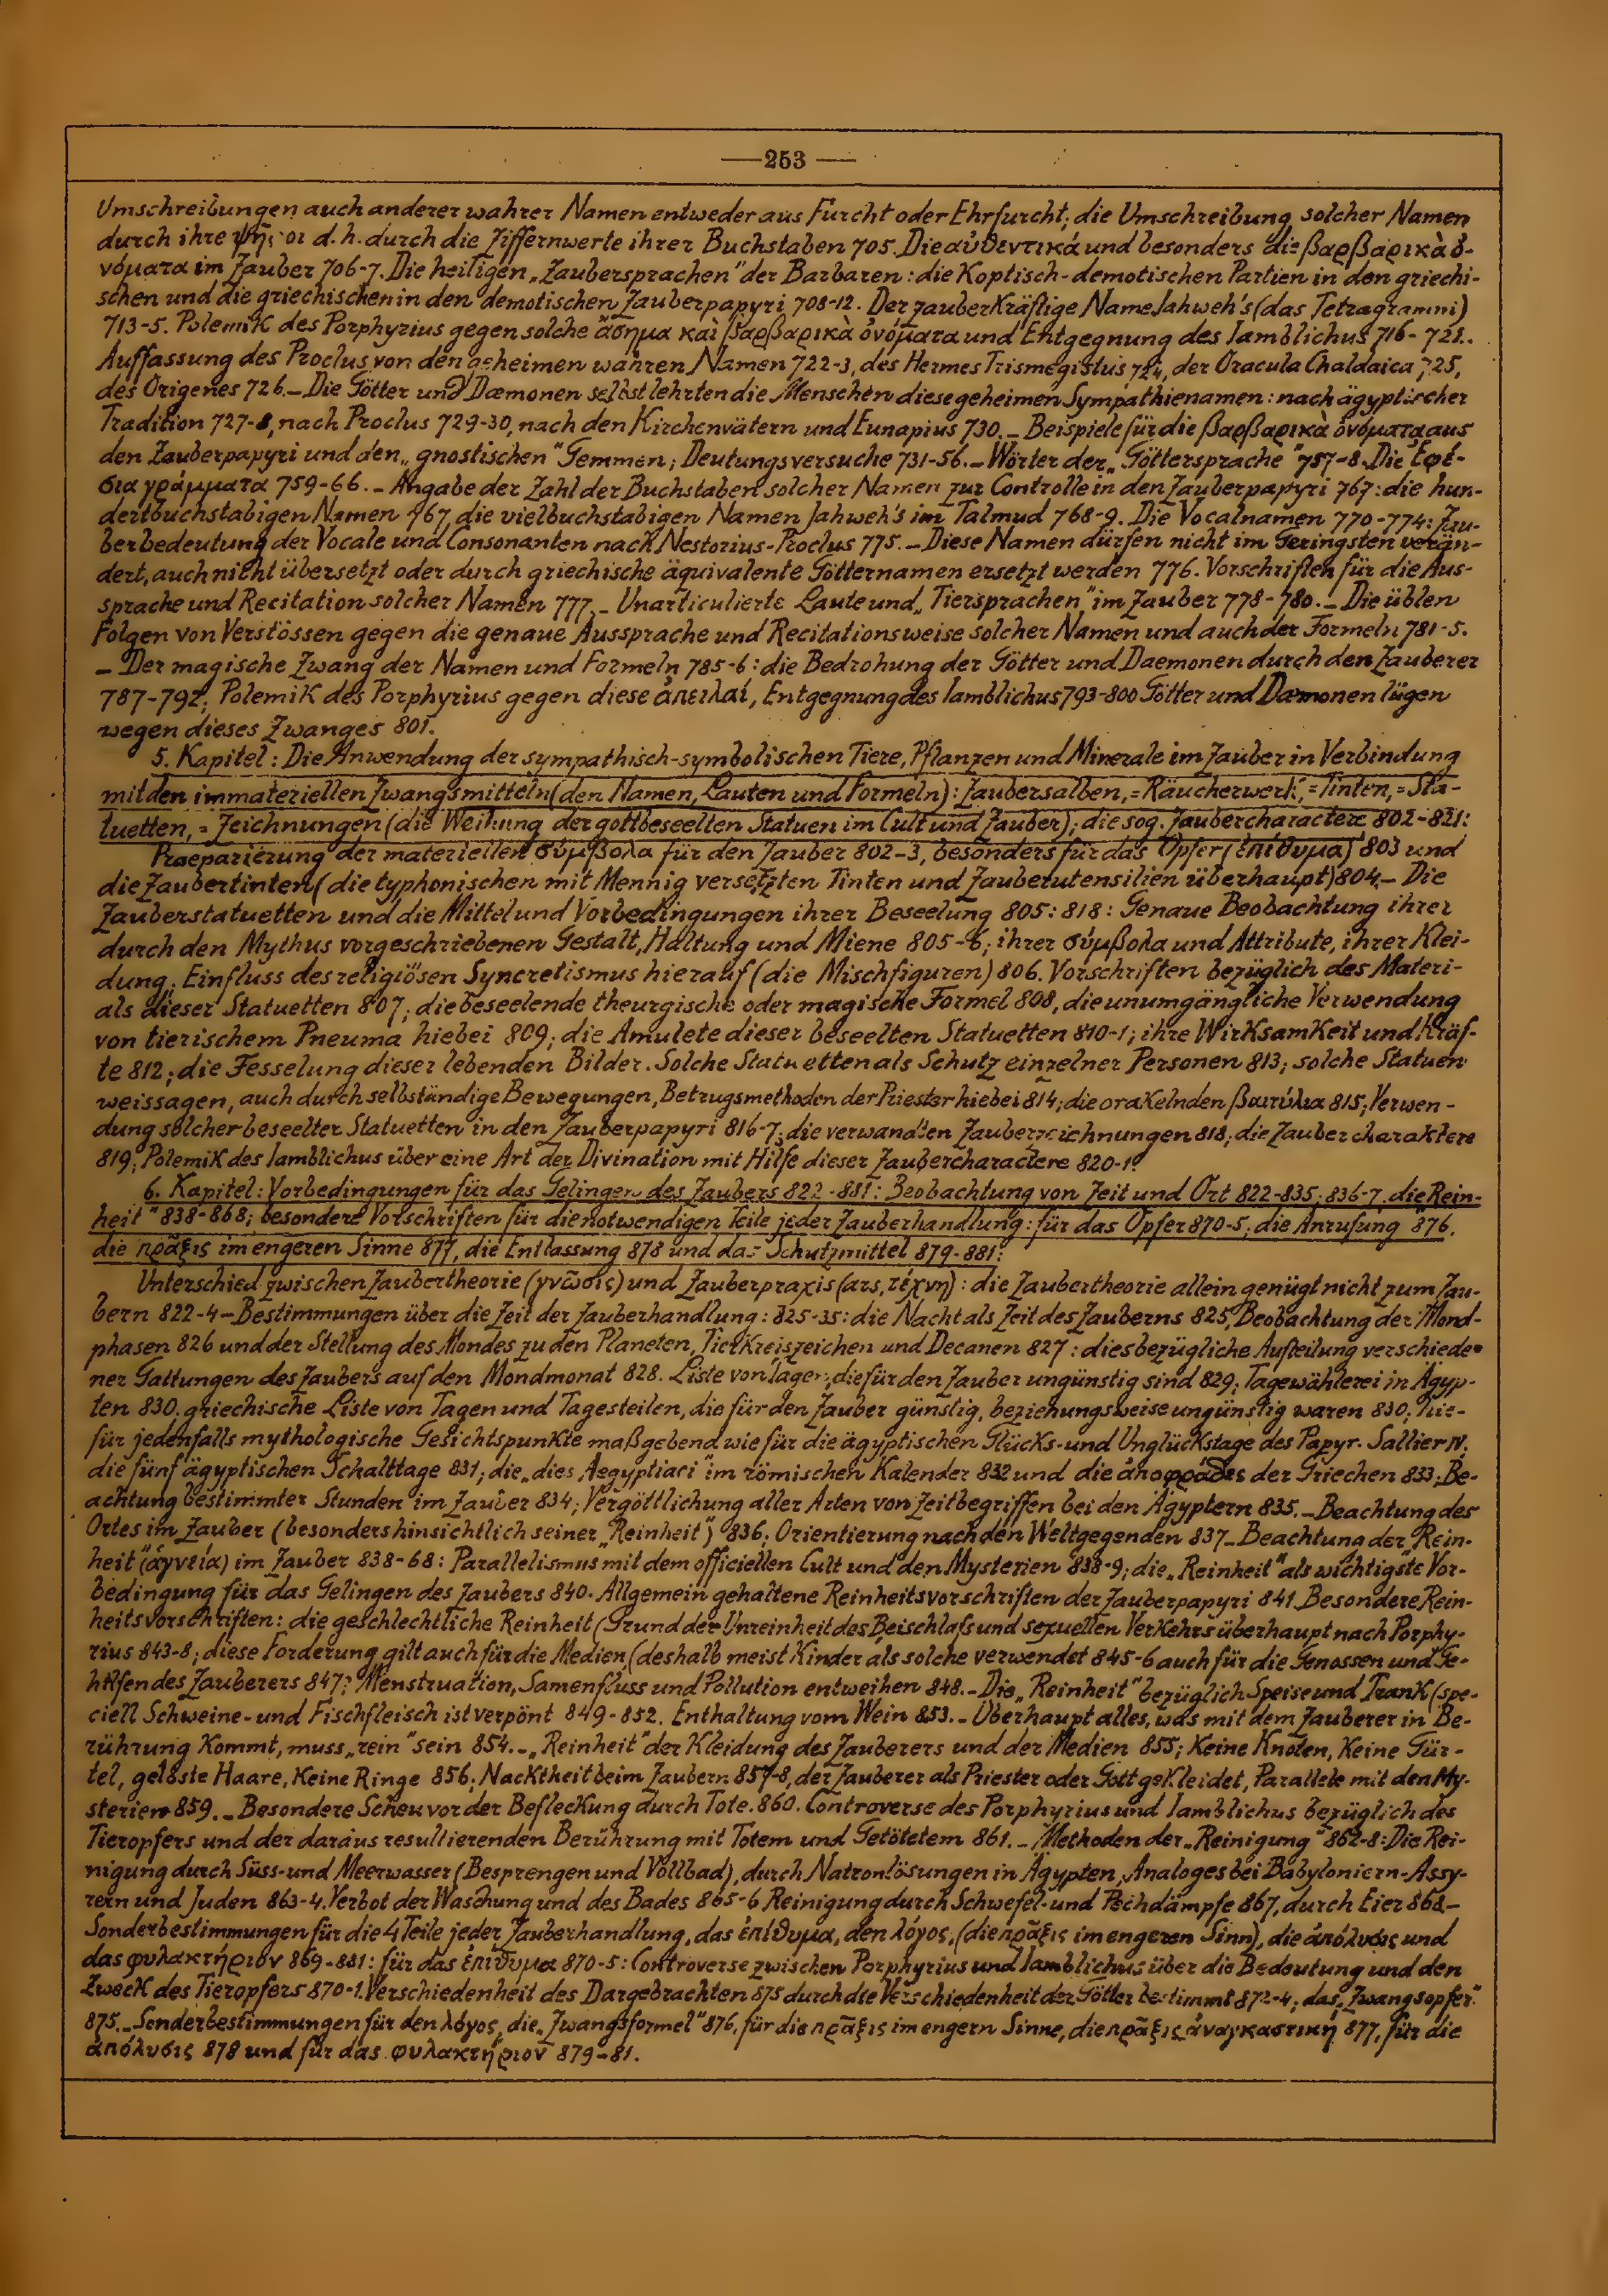 —253—
Umschreibungen auch anderer wahrer Namen entweder aus Furcht oder Ehrfurcht; die Umschreibung solcher Namen
durch ihre d. h. durch die Ziffernwerte ihrer Buchstaben 705. Die αὐθεντικά und besonders die βαρβαρικὰ ὀ-
νόματα im Zauber 706-7. Die heiligen „Zaubersprachen" der Barbaren: die Koptisch-demotischen Partien in den griechi-
schen und die griechischen in den demotischen Zauberpapyri 708-12. Der zauberkräftige Name Jahweh's (das Tetragramm)
713-5. Polemik des Porphyrius gegen solche ἄσημα καὶ βαρβαρικὰ ὀνόματα und Entgegnung des Iamblichus 716-721.
Auffassung des Proclus von den geheimen wahren Namen 722-3, des Hermes Trismegistus 724, der Oracula Chaldaica 725,
des Origenes 726. – Die Götter und Dæmonen selbst lehrten die Menschen diese geheimen Sympathienamen: nach ägyptischer
Tradition 727-8, nach Proclus 729-30, nach den Kirchenvätern und Eunapius 730. – Beispiele für die βαρβαρικὰ ὀνόματα aus
den Zauberpapyri und den „gnostischen" Gemmen; Deutungsversuche 731-56. – Wörter der „Göttersprache" 757-8. Die Ἐφέ-
σια γράμματα 759-66. – Angabe der Zahl der Buchstaben solcher Namen zur Controlle in den Zauberpapyri 767: die hun-
dertbuchstabigen Namen 767, die vielbuchstabigen Namen Jahweh's im Talmud 768-9. Die Vocalnamen 770-774: Zau-
berbedeutung der Vocale und Consonanten nach Nestorius-Proclus 775. – Diese Namen dürfen nicht im Geringsten verän-
dert, auch nicht übersetzt oder durch griechische äquivalente Götternamen ersetzt werden 776. Vorschriften für die Aus-
sprache und Recitation solcher Namen 777. – Unarticulierte Laute und „Tiersprachen" im Zauber 778-780. – Die üblen
Folgen von Verstössen gegen die genaue Aussprache und Recitationsweise solcher Namen und auch der Formeln 781-5.
– Der magische Zwang der Namen und Formeln 785-6: die Bedrohung der Götter und Daemonen durch den Zauberer
787-792; Polemik des Porphyrius gegen diese ἀπειλαί, Entgegnung des Iamblichus 793-800 Götter und Dæmonen lügen
wegen dieses Zwanges 801.
5. Kapitel: Die Anwendung der sympathisch-symbolischen Tiere, Pflanzen und Minerale im Zauber in Verbindung
mit den immateriellen Zwangsmitteln (den Namen, Lauten und Formeln): Zaubersalben, =Räucherwerk, =Tinten, =Sta-
tuetten, = Zeichnungen (die Weihung der gottbeseelten Statuen im Cult und Zauber); die sog. Zaubercharactere 802-821:
Praeparierung der materiellen σύμβολα für den Zauber 802-3, besonders für das Opfer (ἐπίθυμα) 803 und
die Zaubertinten (die typhonischen mit Mennig versetzten Tinten und Zauberutensilien überhaupt) 804. – Die
Zauberstatuetten und die Mittel und Vorbedingungen ihrer Beseelung 805: 818: Genaue Beobachtung ihrer
durch den Mythus vorgeschriebenen Gestalt, Haltung und Miene 805-6; ihrer σύμβολα und Attribute, ihrer Klei-
dung; Einfluss des religiösen Syncretismus hierauf (die Mischfiguren) 806. Vorschriften bezüglich des Materi-
als dieser Statuetten 807; die beseelende theurgische oder magische Formel 808, die unumgängliche Verwendung
von tierischem Pneuma hiebei 809; die Amulete dieser beseelten Statuetten 810-1; ihre Wirksamkeit und Kräf-
te 812; die Fesselung dieser lebenden Bilder. Solche Statuetten als Schutz einzelner Personen 813; solche Statuen
weissagen, auch durch selbständige Bewegungen, Betrugsmethoden der Priester hiebei 814; die orakelnden βαιτύλια 815; Verwen-
dung solcher beseelter Statuetten in den Zauberpapyri 816-7; die verwandten Zauberzeichnungen 818; die Zaubercharaktere
819; Polemik des Iamblichus über eine Art der Divination mit Hilfe dieser Zaubercharactere 820-1.
6. Kapitel: Vorbedingungen für das Gelingen des Zaubers 822-881: Beobachtung von Zeit und Ort 822-835; 836-7, die Rein-
heit" 838-868; besondere Vorschriften für die notwendigen Teile jeder Zauberhandlung: für das Opfer 870-5, die Anrufung 876,
die πρᾶξις im engeren Sinne 877, die Entlassung 878 und das Schutzmittel 879-881:
Unterschied zwischen Zaubertheorie (γνῶσις) und Zauberpraxis (ars, τέχνη): die Zaubertheorie allein genügt nicht zum Zau-
bern 822-4 – Bestimmungen über die Zeit der Zauberhandlung: 825-35: die Nacht als Zeit des Zauberns 825, Beobachtung der Mond-
phasen 826 und der Stellung des Mondes zu den Planeten, Tierkreiszeichen und Decanen 827: diesbezügliche Aufteilung verschiede-
ner Gattungen des Zaubers auf den Mondmonat 828. Liste von Tagen, die für den Zauber ungünstig sind 829; Tagewählerei in Ägyp-
ten 830; griechische Liste von Tagen und Tagesteilen, die für den Zauber günstig, beziehungsweise ungünstig waren 830; hie-
für jedenfalls mythologische Gesichtspunkte maßgebend wie für die ägyptischen Glücks- und Unglückstage des Papyr. Sallier IV.
die fünf ägyptischen Schalttage 831; die „dies Aegyptiaci" im römischen Kalender 832 und die ἀποφράδες der Griechen 833; Be-
achtung bestimmter Stunden im Zauber 834; Vergöttlichung aller Arten von Zeitbegriffen bei den Ägyptern 835. – Beachtung des
Ortes im Zauber (besonders hinsichtlich seiner „Reinheit") 836; Orientierung nach den Weltgegenden 837 – Beachtung der „Rein-
heit" (ἁγνεία) im Zauber 838-68: Parallelismus mit dem officiellen Cult und den Mysterien 838-9; die „Reinheit" als wichtigste Vor-
bedingung für das Gelingen des Zaubers 840. Allgemein gehaltene Reinheitsvorschriften der Zauberpapyri 841. Besondere Rein-
heitsvorschriften: die geschlechtliche Reinheit (Grund der Unreinheit des Beischlafs und sexuellen Verkehrs überhaupt nach Porphy-
rius 843-8; diese Forderung gilt auch für die Medien, (deshalb meist Kinder als solche verwendet 845-6 auch für die Genossen und Ge-
hilfen des Zauberers 847; Menstruation, Samenfluss und Pollution entweihen 848. – Die „Reinheit" bezüglich Speise und Trank (spe-
ciell Schweine- und Fischfleisch ist verpönt 849-852. Enthaltung vom Wein 853. – Überhaupt alles, was mit dem Zauberer in Be-
rührung kommt, muss „rein" sein 854. – „Reinheit" der Kleidung des Zauberers und der Medien 855; Keine Knoten, Keine Gür-
tel, gelöste Haare, Keine Ringe 856; Nacktheit beim Zaubern 857-8, der Zauberer als Priester oder Gott gekleidet, Parallele mit den My-
sterien 859. – Besondere Scheu vor der Befleckung durch Tote. 860. Controverse des Porphyrius und Iamblichus bezüglich des
Tieropfers und der daraus resultierenden Berührung mit Totem und Getötetem 861. – Methoden der „Reinigung" 862-8: Die Rei-
nigung durch Süss- und Meerwasser (Besprengen und Vollbad), durch Natronlösungen in Ägypten, Analoges bei Babyloniern-Assy-
rern und Juden 863-4. Verbot der Waschung und des Bades 865-6 Reinigung durch Schwefel- und Pechdämpfe 867, durch Eier 868 –
Sonderbestimmungen für die 4 Teile jeder Zauberhandlung, das ἐπίθυμα, den λόγος, (die πρᾶξις im engeren Sinn), die ἀπόλυσις und
das φυλακτήριον 869-881: für das ἐπίθυμα 870-5: Controverse zwischen Porphyrius und Iamblichus über die Bedeutung und den
Zweck des Tieropfers 870-1. Verschiedenheit des Dargebrachten 875 durch die Verschiedenheit der Götter bestimmt 872-4; das „Zwangsopfer"
875. – Sonderbestimmungen für den λόγος, die „Zwangsformel" 876, für die πρᾶξις im engern Sinne, die πρᾶξις ἀναγκαστική 877, für die
ἀπόλυσις 878 und für das φυλακτήριον 879-81.